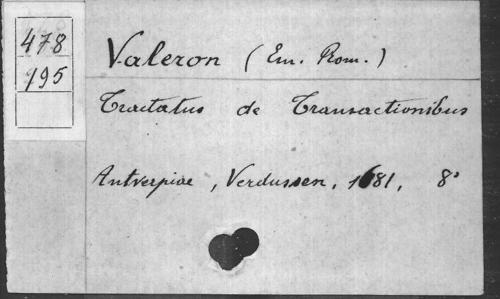 478
195
Valeron (Em. Rom.)
Tractatus de Transactionibus
Antverpiae, Verdussen, 1681, 8°